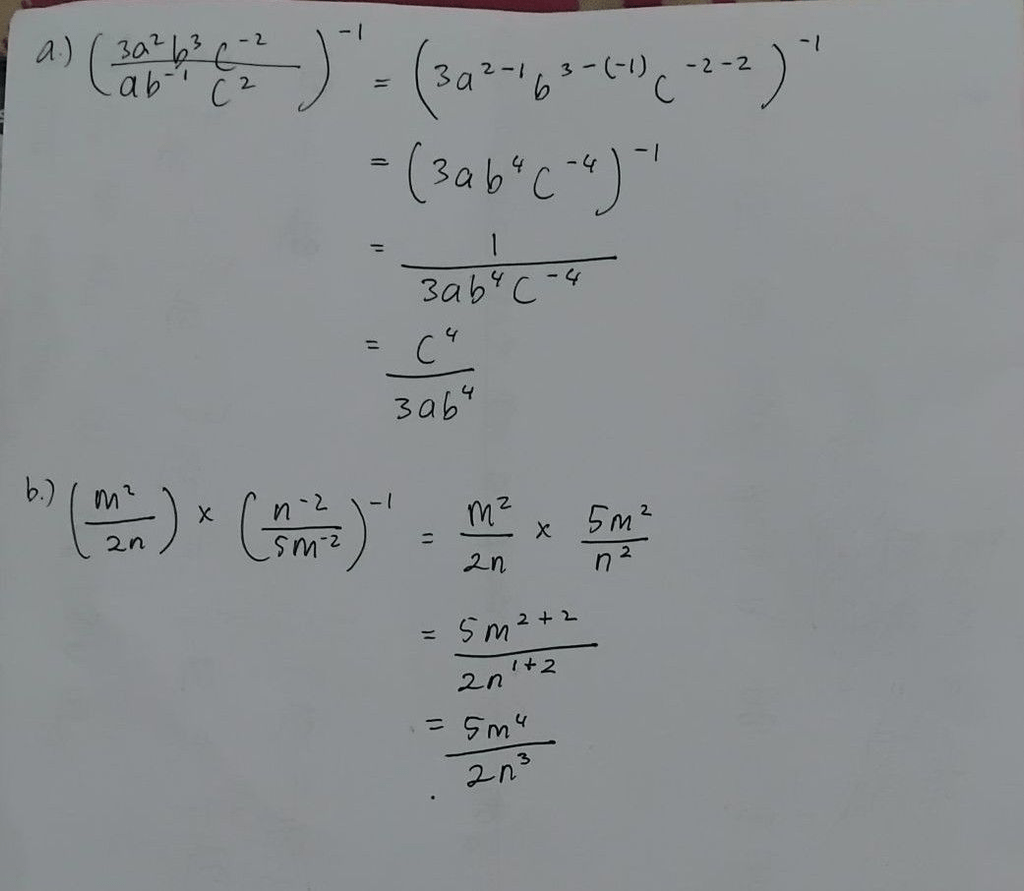 a.) (3a²b³c⁻² / ab⁻¹c²)⁻¹ = (3a²⁻¹b³⁻⁽⁻¹⁾c⁻²⁻²)⁻¹
= (3ab⁴c⁻⁴)⁻¹
= 1 / 3ab⁴c⁻⁴
= c⁴ / 3ab⁴
b.) (m² / 2n) × (n⁻² / 5m⁻²)⁻¹ = m² / 2n × 5m² / n²
= 5m²⁺² / 2n¹⁺²
= 5m⁴ / 2n³